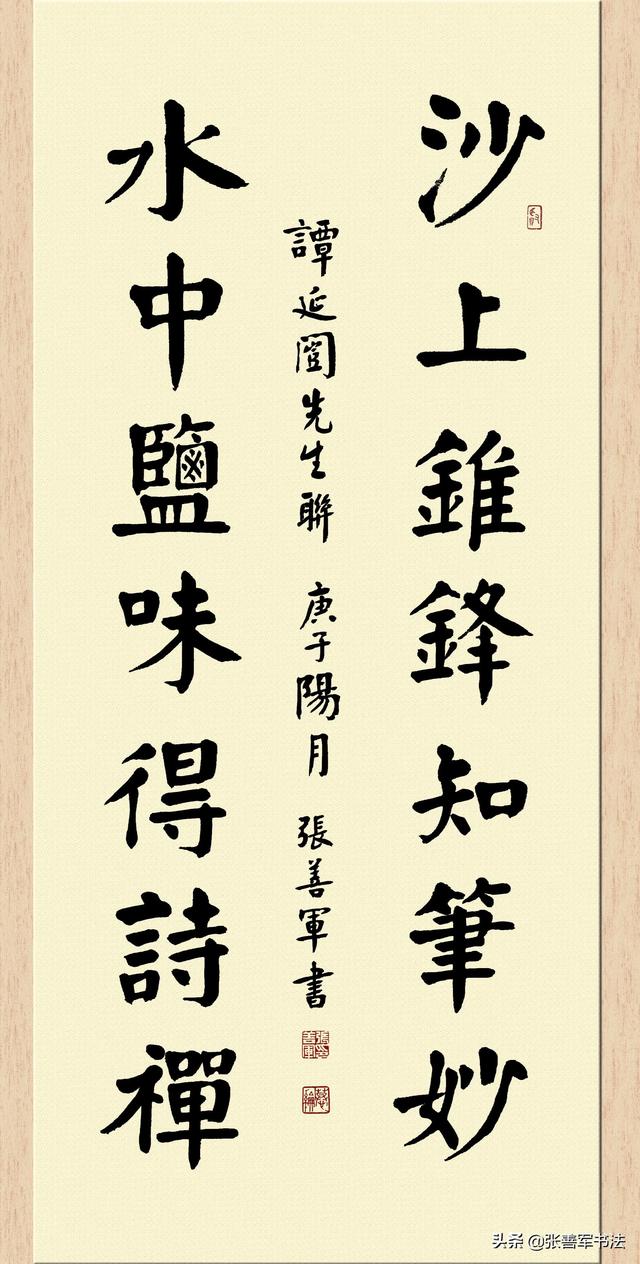 沙上錐鋒知筆妙
譚延闓先生聯 庚子陽月 張善軍書
水中鹽味得詩禪
头条 @张善军书法